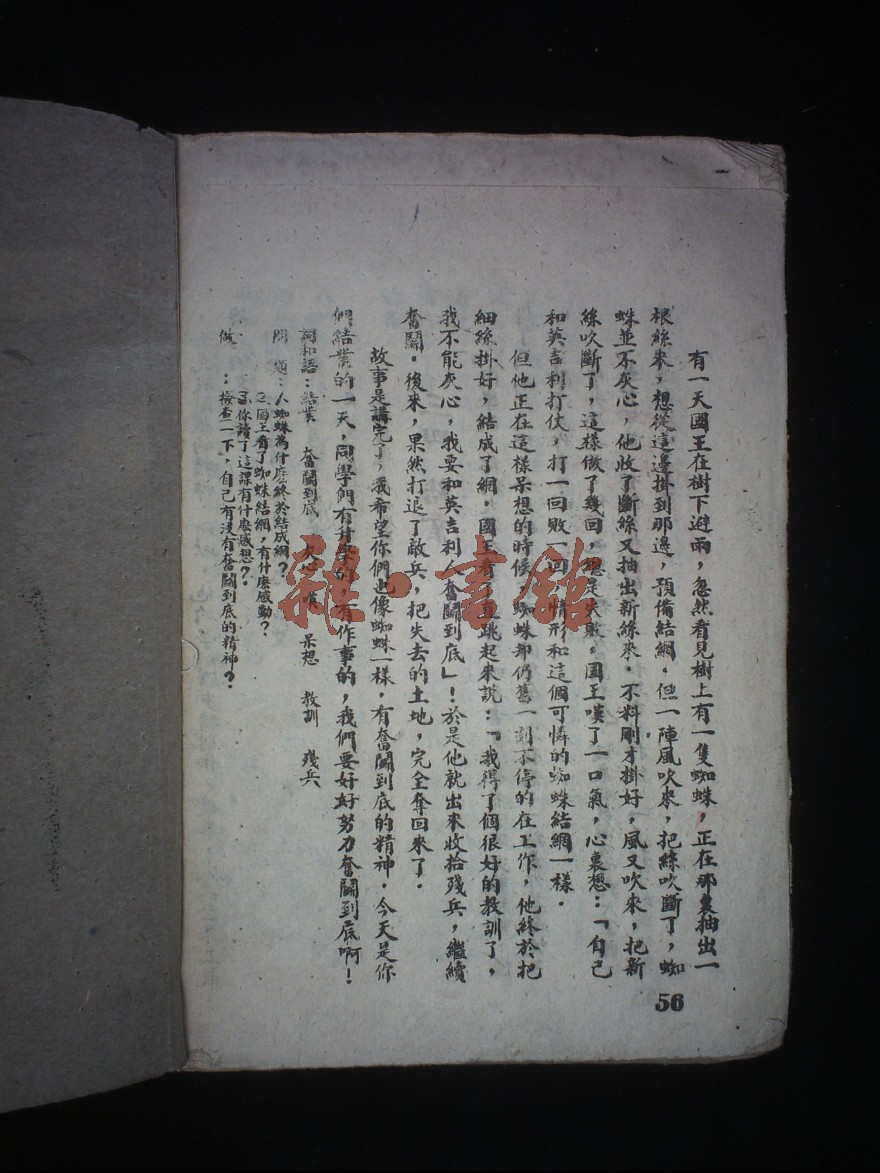 有一天國王在樹下避雨，忽然看見樹上有一隻蜘蛛，正在那裏抽出一
根絲來，想從這邊掛到那邊，預備結網。但一陣風吹來，把絲吹斷了，蜘
蛛並不灰心，他收了斷絲又抽出新絲來。不料剛才掛好，風又吹來，把新
絲吹斷了，這樣做了幾回，總是失敗。國王嘆了一口氣，心裏想：「自己
和英吉利打仗，打一回敗一回，情形和這個可憐的蜘蛛結網一樣。
但他正在這樣呆想的時候，蜘蛛却仍舊一刻不停的在工作，他終於把
細絲掛好，結成了網。國王看了直跳起來說：「我得了個很好的教訓了，
我不能灰心，我要和英吉利人奮鬭到底」！於是他就出來收拾殘兵，繼續
奮鬭。後來，果然打退了敵兵，把失去的土地，完全奪回來了。
故事是講完了，我希望你們也像蜘蛛一樣，有奮鬭到底的精神。今天是你
們結業的一天，同學們有升學的，有作事的，我們要好好努力奮鬭到底啊！
詞和語：結業 奮鬭到底 灰心 嘆 呆想 教訓 殘兵
問題：1.蜘蛛為什麽終於結成網？
2.國王看了蜘蛛結網，有什麽感動？
3.你讀了這課有什麽感想？
做：檢查一下，自己有沒有奮鬭到底的精神？
56
雜·書館